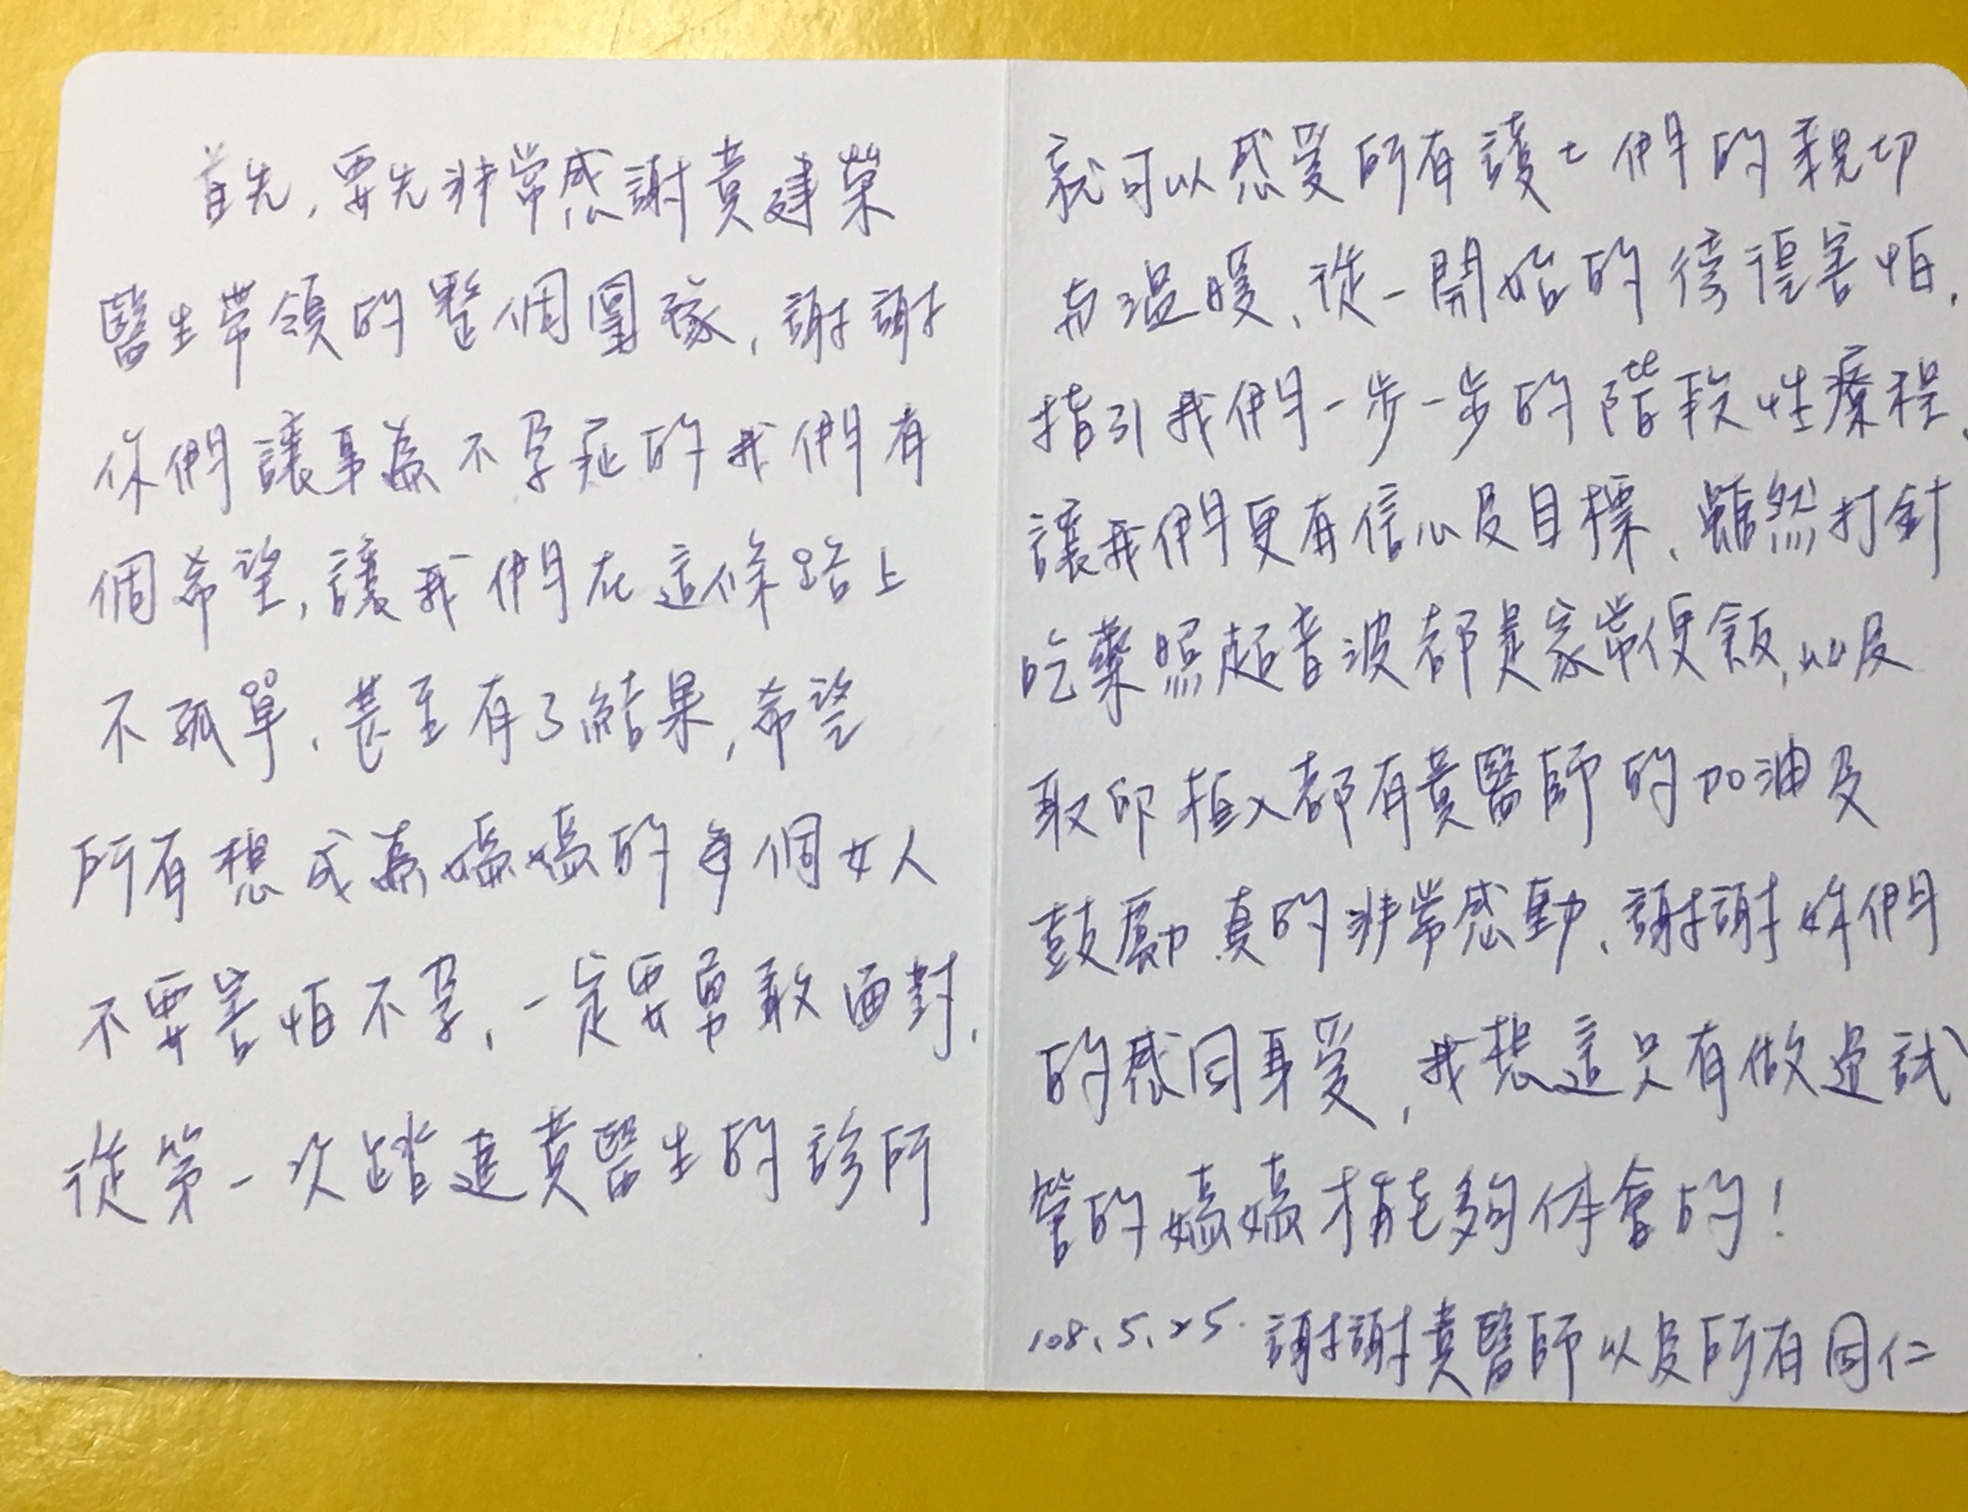 首先,要先非常感謝黃建榮
醫生帶領的整個團隊,謝謝
你們讓身為不孕症的我們有
個希望,讓我們在這條路上
不孤單、甚至有了結果,希望
所有想成為媽媽的每個女人
不要害怕不孕,一定要勇敢面對,
從第一次踏進黃醫生的診所
就可以感受所有護士們的親切
與溫暖、從一開始的徬徨害怕,
指引我們一步一步的階段性療程、
讓我們更有信心及目標、雖然打針
吃藥照超音波都是家常便飯,以及
取卵植入都有黃醫師的加油及
鼓勵真的非常感動、謝謝妳們
的感同身受,我想這只有做過試
管的媽媽才能夠体會的!
108.5.25. 謝謝黃醫師以及所有同仁